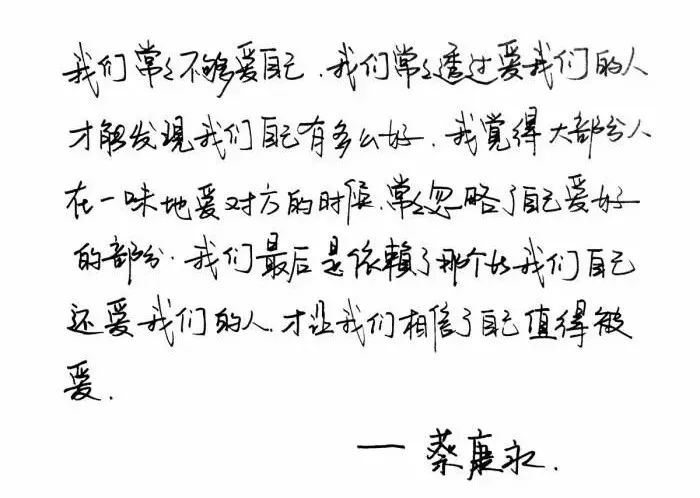 我们常々不够爱自己.我们常々透过爱我们的人
才能发现我们自己有多么好.我觉得大部分人
在一味地爱对方的时候.常々忽略了自己爱好
的部分.我们最后是依赖了那个比我们自己
还爱我们的人.才让我们相信了自己值得被
爱.
——蔡康永.